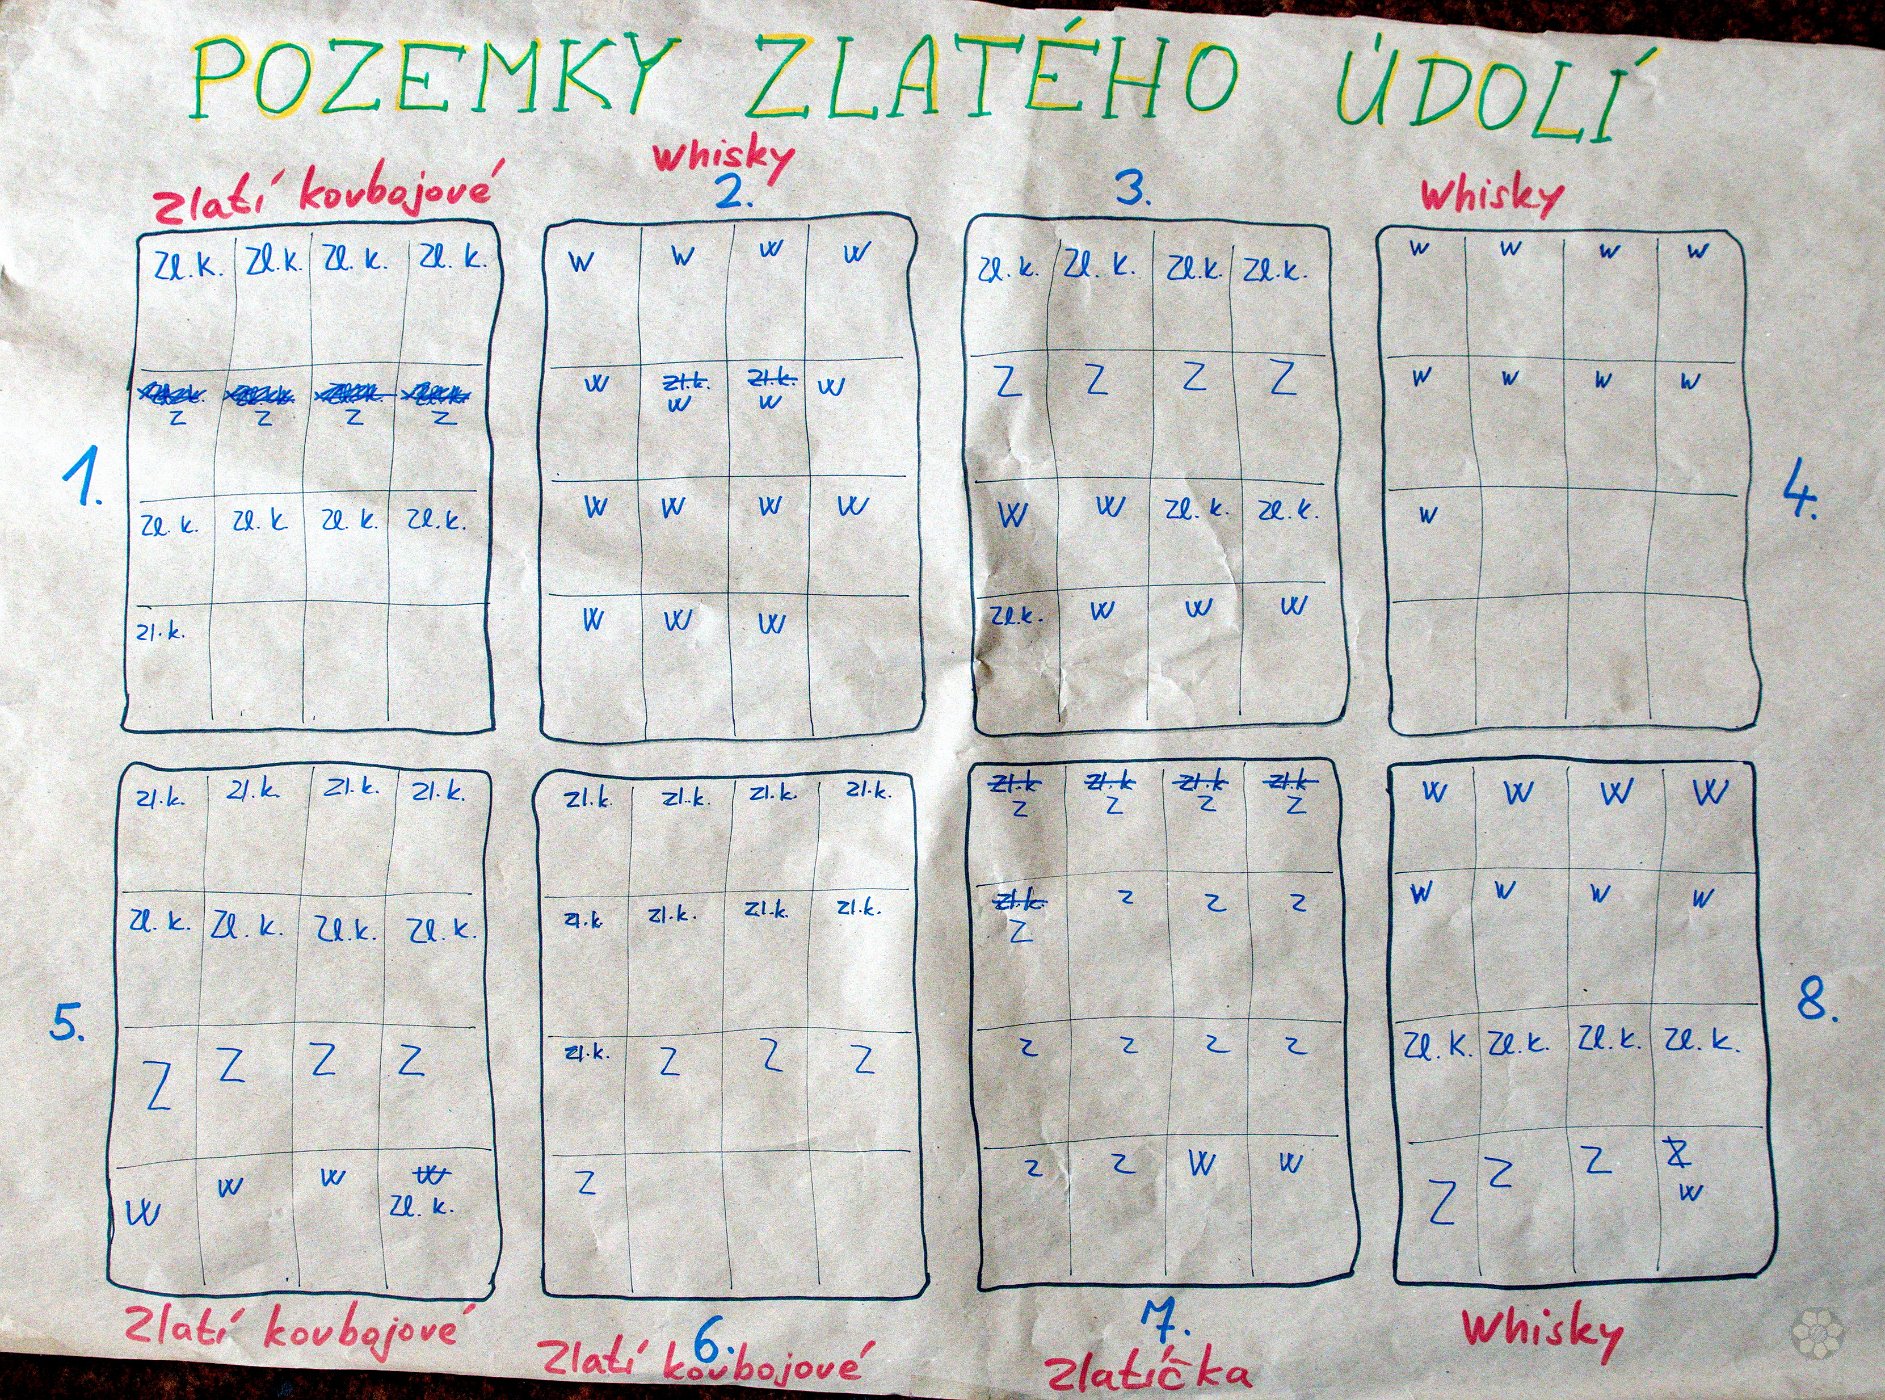 POZEMKY ZLATÉHO ÚDOLÍ
Zlatí kovbojové
Whisky
2.
3.
Whisky
1.
Zl.k. Zl.k. Zl.k. Zl.k.
Z Z Z Z
Zl.k. Zl.k Zl.k. Zl.k.
Zl.k.
W W W W
W Zl.k. Zl.k. W
W W
W W W W
W W W
Zl.k. Zl.k. Zl.k. Zl.k.
Z Z Z Z
W W Zl.k. Zl.k.
Zl.k. W W W
W W W W
W W W W
W
4.
5.
Zl.k. Zl.k. Zl.k. Zl.k.
Zl.k. Zl.k. Zl.k. Zl.k.
Z Z Z Z
W W W W
Zl.k.
Zl.k. Zl.k. Zl.k. Zl.k.
Zl.k Zl.k. Zl.k. Zl.k.
Zl.k. Z Z Z
Z
Zl.k Zl.k Zl.k Zl.k
Z Z Z Z
Zl.k. Z Z Z
Z
Z Z Z Z
Z Z W W
W W W W
W W W W
Zl.K. Zl.k. Zl.k. Zl.k.
Z Z Z Z
W
8.
Zlatí kovbojové
6.
Zlatí kovbojové
7.
Zlatíčka
Whisky